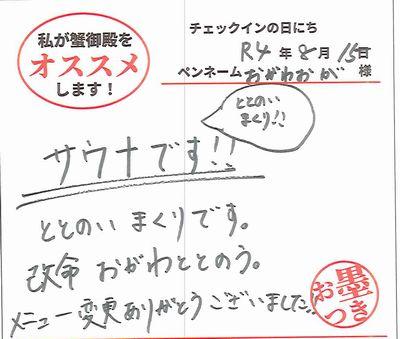 私が蟹御殿を
オススメ
します！
チェックインの日にち
R4年8月15日
ペンネーム おがわおが 様
ととのい
まくり!!
サウナです!!
ととのい まくりです。
改命 おがわととのう。
メニュー変更ありがとうございました。
お墨つき